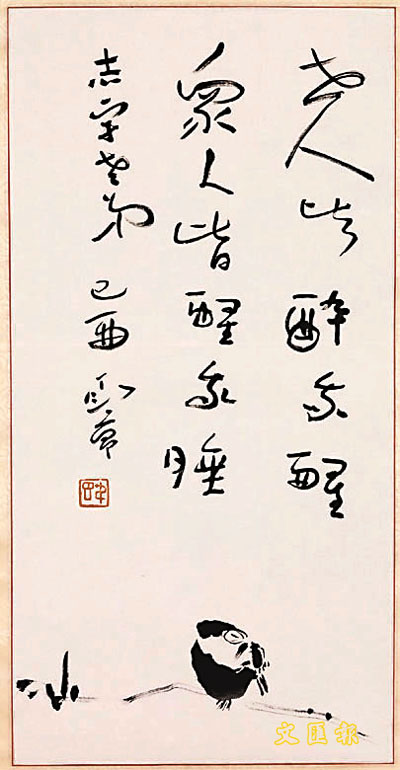 世人皆醉我醒
眾人皆醒我睡
老弟 己酉
文匯報